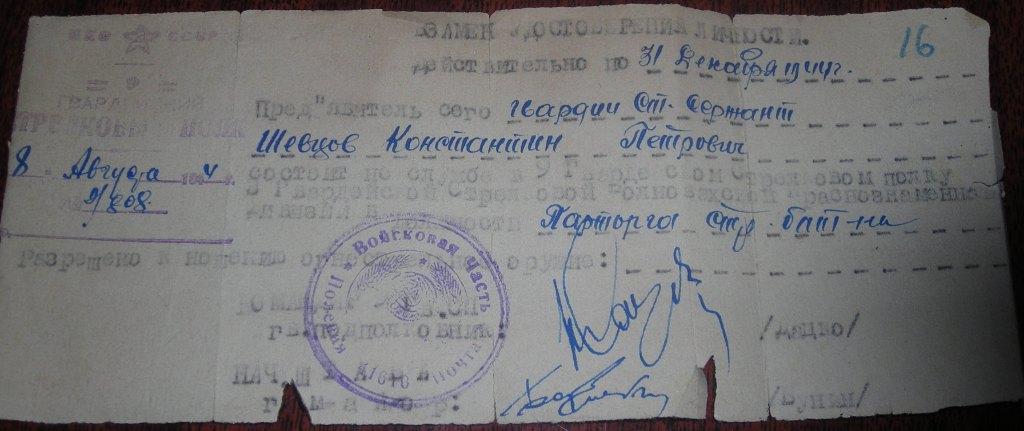 НКО СССР
= 9 =
ГВАРДЕЙСКИЙ
СТРЕЛКОВЫЙ ПОЛК
8 Августа 1944 г.
ВЗАМЕН УДОСТОВЕРЕНИЯ ЛИЧНОСТИ.
16
Действительно по 31 Декабря 1944г.
Пред"явитель сего гвардии Ст. Сержант
Шевцов Константин Петрович
состоит на службе в 9 Гвардейском Стрелковом полку
5 Гвардейской Стрелковой Краснознаменной
дивизии в должности
Парторга Стр. бат-на
Разрешено к ношению оружие:
КОМАНДИР
ГВ.ПОДПОЛКОВНИК:
/ДЕДКО/
НАЧ.ШТАБА
г. м а й о р:
Войсковая Часть
Полевая Почта